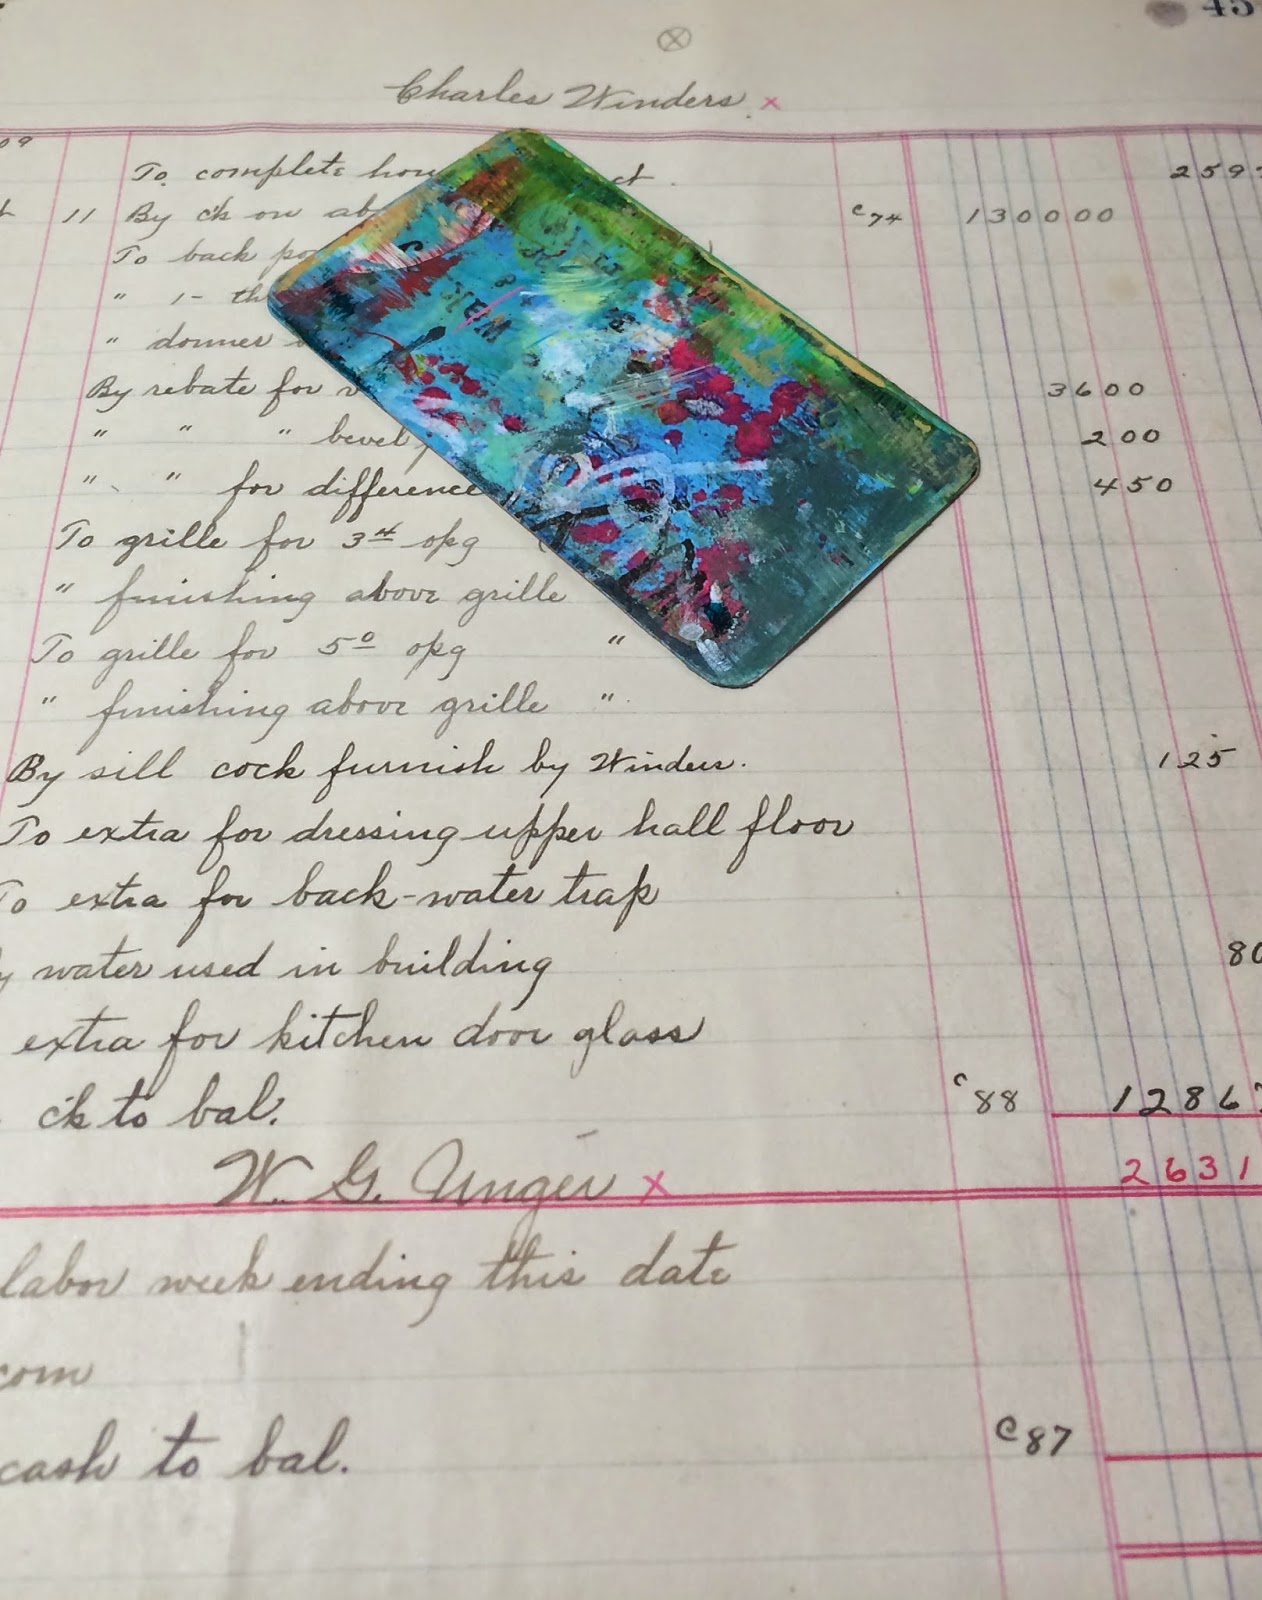 45
Charles Winders x
09
To complete hou ct. 259
11 By c'k on ab c74 130000
To back po
" 1- th
" dormer
By rebate for 3600
" " " bevel 200
" " for difference 450
To grille for 3 4 opg
" finishing above grille
To grille for 5 0 opg "
" finishing above grille "
By sill cock furnish by Winders. 125
To extra for dressing upper hall floor
To extra for back-water trap
y water used in building 80
extra for kitchen door glass
c'k to bal. c88 1286
W. G. Unger x 2631
labor week ending this date
com
cash to bal. c87